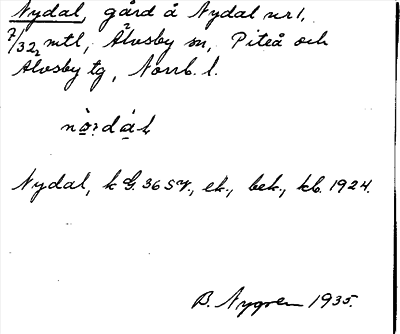 Nydal, gård å Nydal nr 1,
7/32 mtl, Älvsby sn, Piteå och
Älvsby tg, Norrb. l.
Nydal, k G. 36 SV., ek., bek., kb. 1924.
B. Nygren 1935.